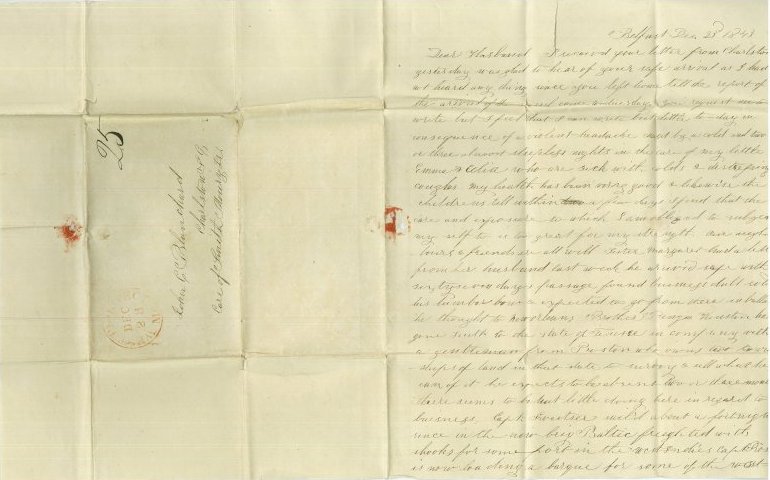 25
Charlston S. C.
Care of Smith
DEC
Belfast Dec 28th 1841
Dear Husband I received your letter from Charlston
yesterday was glad to hear of your safe arrival as I had
not heard any thing since you left home till the report of
the arrival of the came you request me
write but I feel that I can write but little to-day in
consequence of a violent headache by a cold and two
or three almost sleepless nights in the care of my little
Emma & who are sick with colds & distressing
coughs my health has been very good & likewise the
childrens till within a few days I find that the
care and exposure to which I am obliged to subject
my self to is too great for my strength our neigh
bours & friends are all well Sister Margaret had a letter
from her husband last week he arrived safe with
days passage found business dull sold
his lumber expected to go from
he thought to Brother
gone south to the state of in company with
a gentleman from Boston who owns two town
ships of land in that state to survey & sell what he
can of it he expects to be absent two or three months
there seems to be but little doing here in regard to
business Capt. sail'd about a fortnight
since in the new brig Baltic freighted with
shooks for some port in the West Indies Capt
is now loading a barque for some of the West